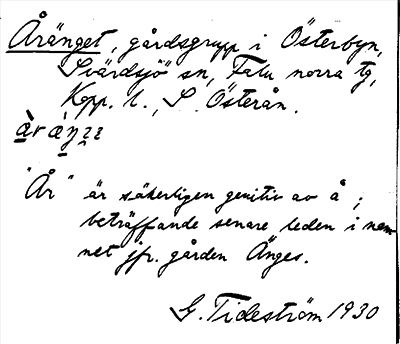 Åränget, gårdsgrupp i Österbyn,
Svärdsjö sn, Falu norra tg,
Kopp. l., S. Österån.
"År" är säkerligen genitiv av å;
beträffande senare leden i nam-
net jfr. gården Änges.
G. Tideström 1930